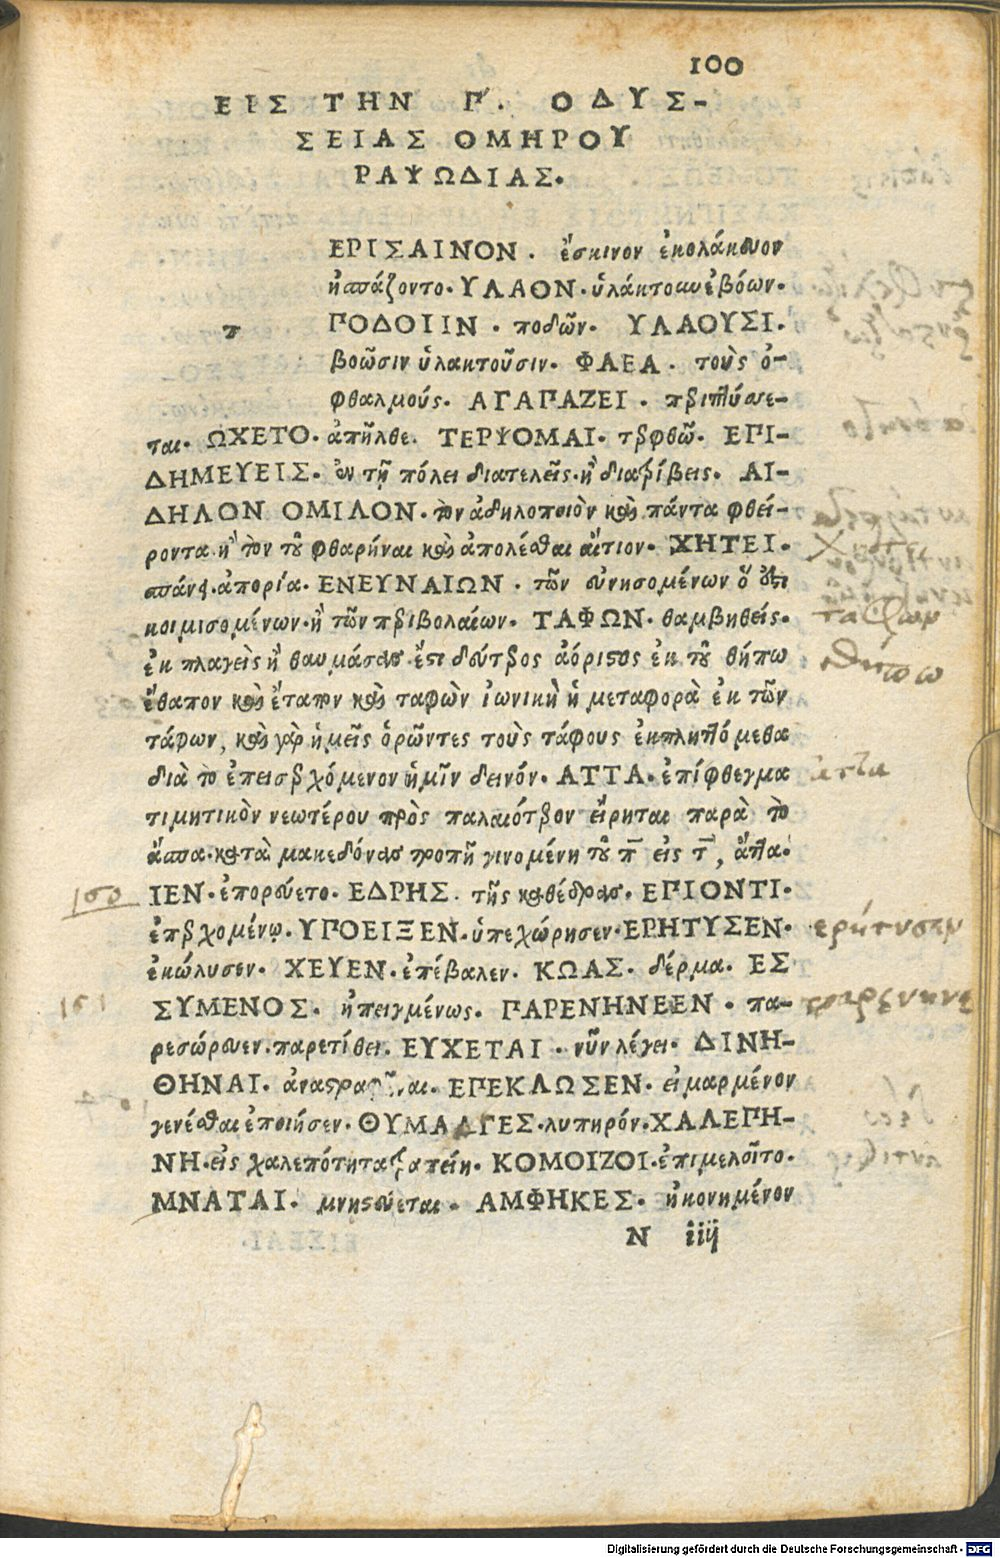 100
ΕΙΣ ΤΗΝ Π΄. ΟΔΥΣ-
ΣΕΙΑΣ ΟΜΗΡΟΥ
ΡΑΨΩΔΙΑΣ.
ΕΡΙΣΑΙΝΟΝ. ἔσκινον ἐκολάκευον
ἠσπάζοντο. ΥΛΑΟΝ. ὑλάκτουν ἐβόων.
π ΠΟΔΟΙΙΝ. ποδῶν. ΥΛΑΟΥΣΙ.
βοῶσιν ὑλακτοῦσιν. ΦΑΕΑ. τοὺς ὀ-
φθαλμούς. ΑΓΑΠΑΖΕΙ. περιπλύσε-
ται. ΩΧΕΤΟ. ἀπῆλθε. ΤΕΡΨΟΜΑΙ. τερφθῶ. ΕΠΙ-
ΔΗΜΕΥΕΙΣ. ἐν τῇ πόλει διατελεῖς. ἢ διατρίβεις. ΑΙ-
ΔΗΛΟΝ ΟΜΙΛΟΝ. τὸν ἀδηλοποιὸν καὶ πάντα φθεί-
ροντα ἢ τὸν τοῦ φθαρῆναι καὶ ἀπολέσθαι αἴτιον. ΧΗΤΕΙ.
σπάνει. ἀπορία. ΕΝΕΥΝΑΙΩΝ. τῶν εὐνησομένων ὅ ἐστι
κοιμισομένων. ἢ τῶν περιβολαίων. ΤΑΦΩΝ. θαμβηθείς.
ἐκ πλαγεὶς ἢ θαυμάσας ἔστι δεύτερος ἀόριστος ἐκ τοῦ θήπω
ἔθαπον καὶ ἔταπον καὶ ταφὼν ἰωνικὴ ἡ μεταφορὰ ἐκ τῶν
τάφων, καὶ γὰρ ἡμεῖς ὁρῶντες τοὺς τάφους ἐκπληττόμεθα
διὰ τὸ ἐπεισερχόμενον ἡμῖν δεινόν. ΑΤΤΑ. ἐπίφθεγμα
τιμητικὸν νεωτέρου πρὸς παλαιότερον εἴρηται παρὰ τὸ
ἄππα. κατὰ μακεδόνας τροπῇ γινομένη τοῦ π̅ εἰς τ̅, ἄττα.
ΙΕΝ. ἐπορεύετο. ΕΔΡΗΣ. τῆς καθέδρας. ΕΠΙΟΝΤΙ.
ἐπερχομένῳ. ΥΠΟΕΙΞΕΝ. ὑπεχώρησεν. ΕΡΗΤΥΣΕΝ.
ἐκώλυσεν. ΧΕΥΕΝ. ἐπέβαλεν. ΚΩΑΣ. δέρμα. ΕΣ
ΣΥΜΕΝΟΣ. ἠπειγμένως. ΠΑΡΕΝΗΝΕΕΝ. πα-
ρεσώρευεν. παρετίθει. ΕΥΧΕΤΑΙ. νῦν λέγει. ΔΙΝΗ-
ΘΗΝΑΙ. ἀναστραφῆναι. ΕΠΕΚΛΩΣΕΝ. εἱμαρμένον
γενέσθαι ἐποιήσεν. ΘΥΜΑΛΓΕΣ. λυπηρόν. ΧΑΛΕΠΗ-
ΝΗ. εἰς χαλεπότητα τραπείη. ΚΟΜΟΙΖΟΙ. ἐπιμελοῖτο.
ΜΝΑΤΑΙ. μνηστεύεται. ΑΜΦΗΚΕΣ. ἠκονημένον
N iiij
ταφων
θηπω
αττα
150
ερήτυσεν
151
παρενηνε
Digitalisierung gefördert durch die Deutsche Forschungsgemeinschaft - DFG